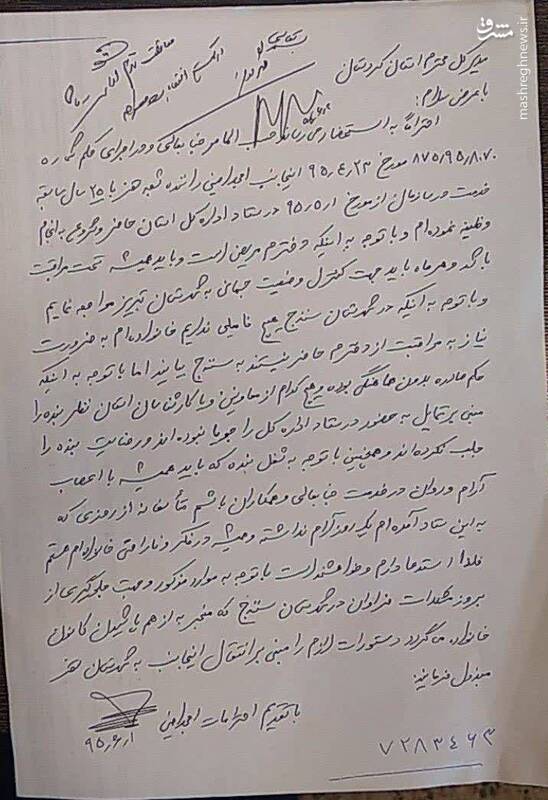 مدیر کل محترم استان کردستان
با عرض سلام:
احتراماً به استحضار می رساند حسب الامر جنابعالی و در اجرای حکم شماره
۸۷۵/۹۵/۸۰۷۰ مورخ ۹۵،۴،۲۳ اینجانب راننده شعبه هنر با ۲۵ سال سابقه
خدمت در سازمان از مورخ ۹۵،۵،۱ در ستاد اداره کل استان حاضر و شروع به انجام
وظیفه نموده ام و با توجه به اینکه دخترم مریض است و باید همیشه تحت مراقبت
باشد و هر ماه باید جهت کنترل وضعیت جسمانی به شهرستان تبریز مراجعه نمایم
و با توجه به اینکه در شهرستان سنندج هیچ فامیلی نداریم خانواده ام به ضرورت
نیاز به مراقبت از دخترم حاضر نیستند به سنندج بیایند اما با توجه به اینکه
حکم صادره بدون هماهنگی بوده و هیچ کدام از معاونین و یا کارشناسان استان نظر بنده را
مبنی بر تمایل به حضور در ستاد اداره کل را جویا نبوده اند و رضایت بنده را
جلب نکرده اند و همچنین با توجه به شغل بنده که باید همیشه با اعصاب
آرام و روان در خدمت جنابعالی و همکاران باشم متأسفانه از روزی که
به این ستاد آمده ام یک روز آرام نداشته و همیشه در فکر و ناراحتی خانواده ام هستم
فلذا استدعا دارم و خواهشمند است با توجه به موارد مذکور و جهت جلوگیری از
بروز مشکلات فراوان در شهرستان سنندج که منجر به از هم پاشیدن کانون
خانواده می گردد دستورات لازم را مبنی بر انتقال اینجانب به شهرستان
مبذول فرمایید
با تقدیم احترامات
۹۵،۶،۱
۷۲۸۳۴۶۳
مشرق
mashreghnews.ir